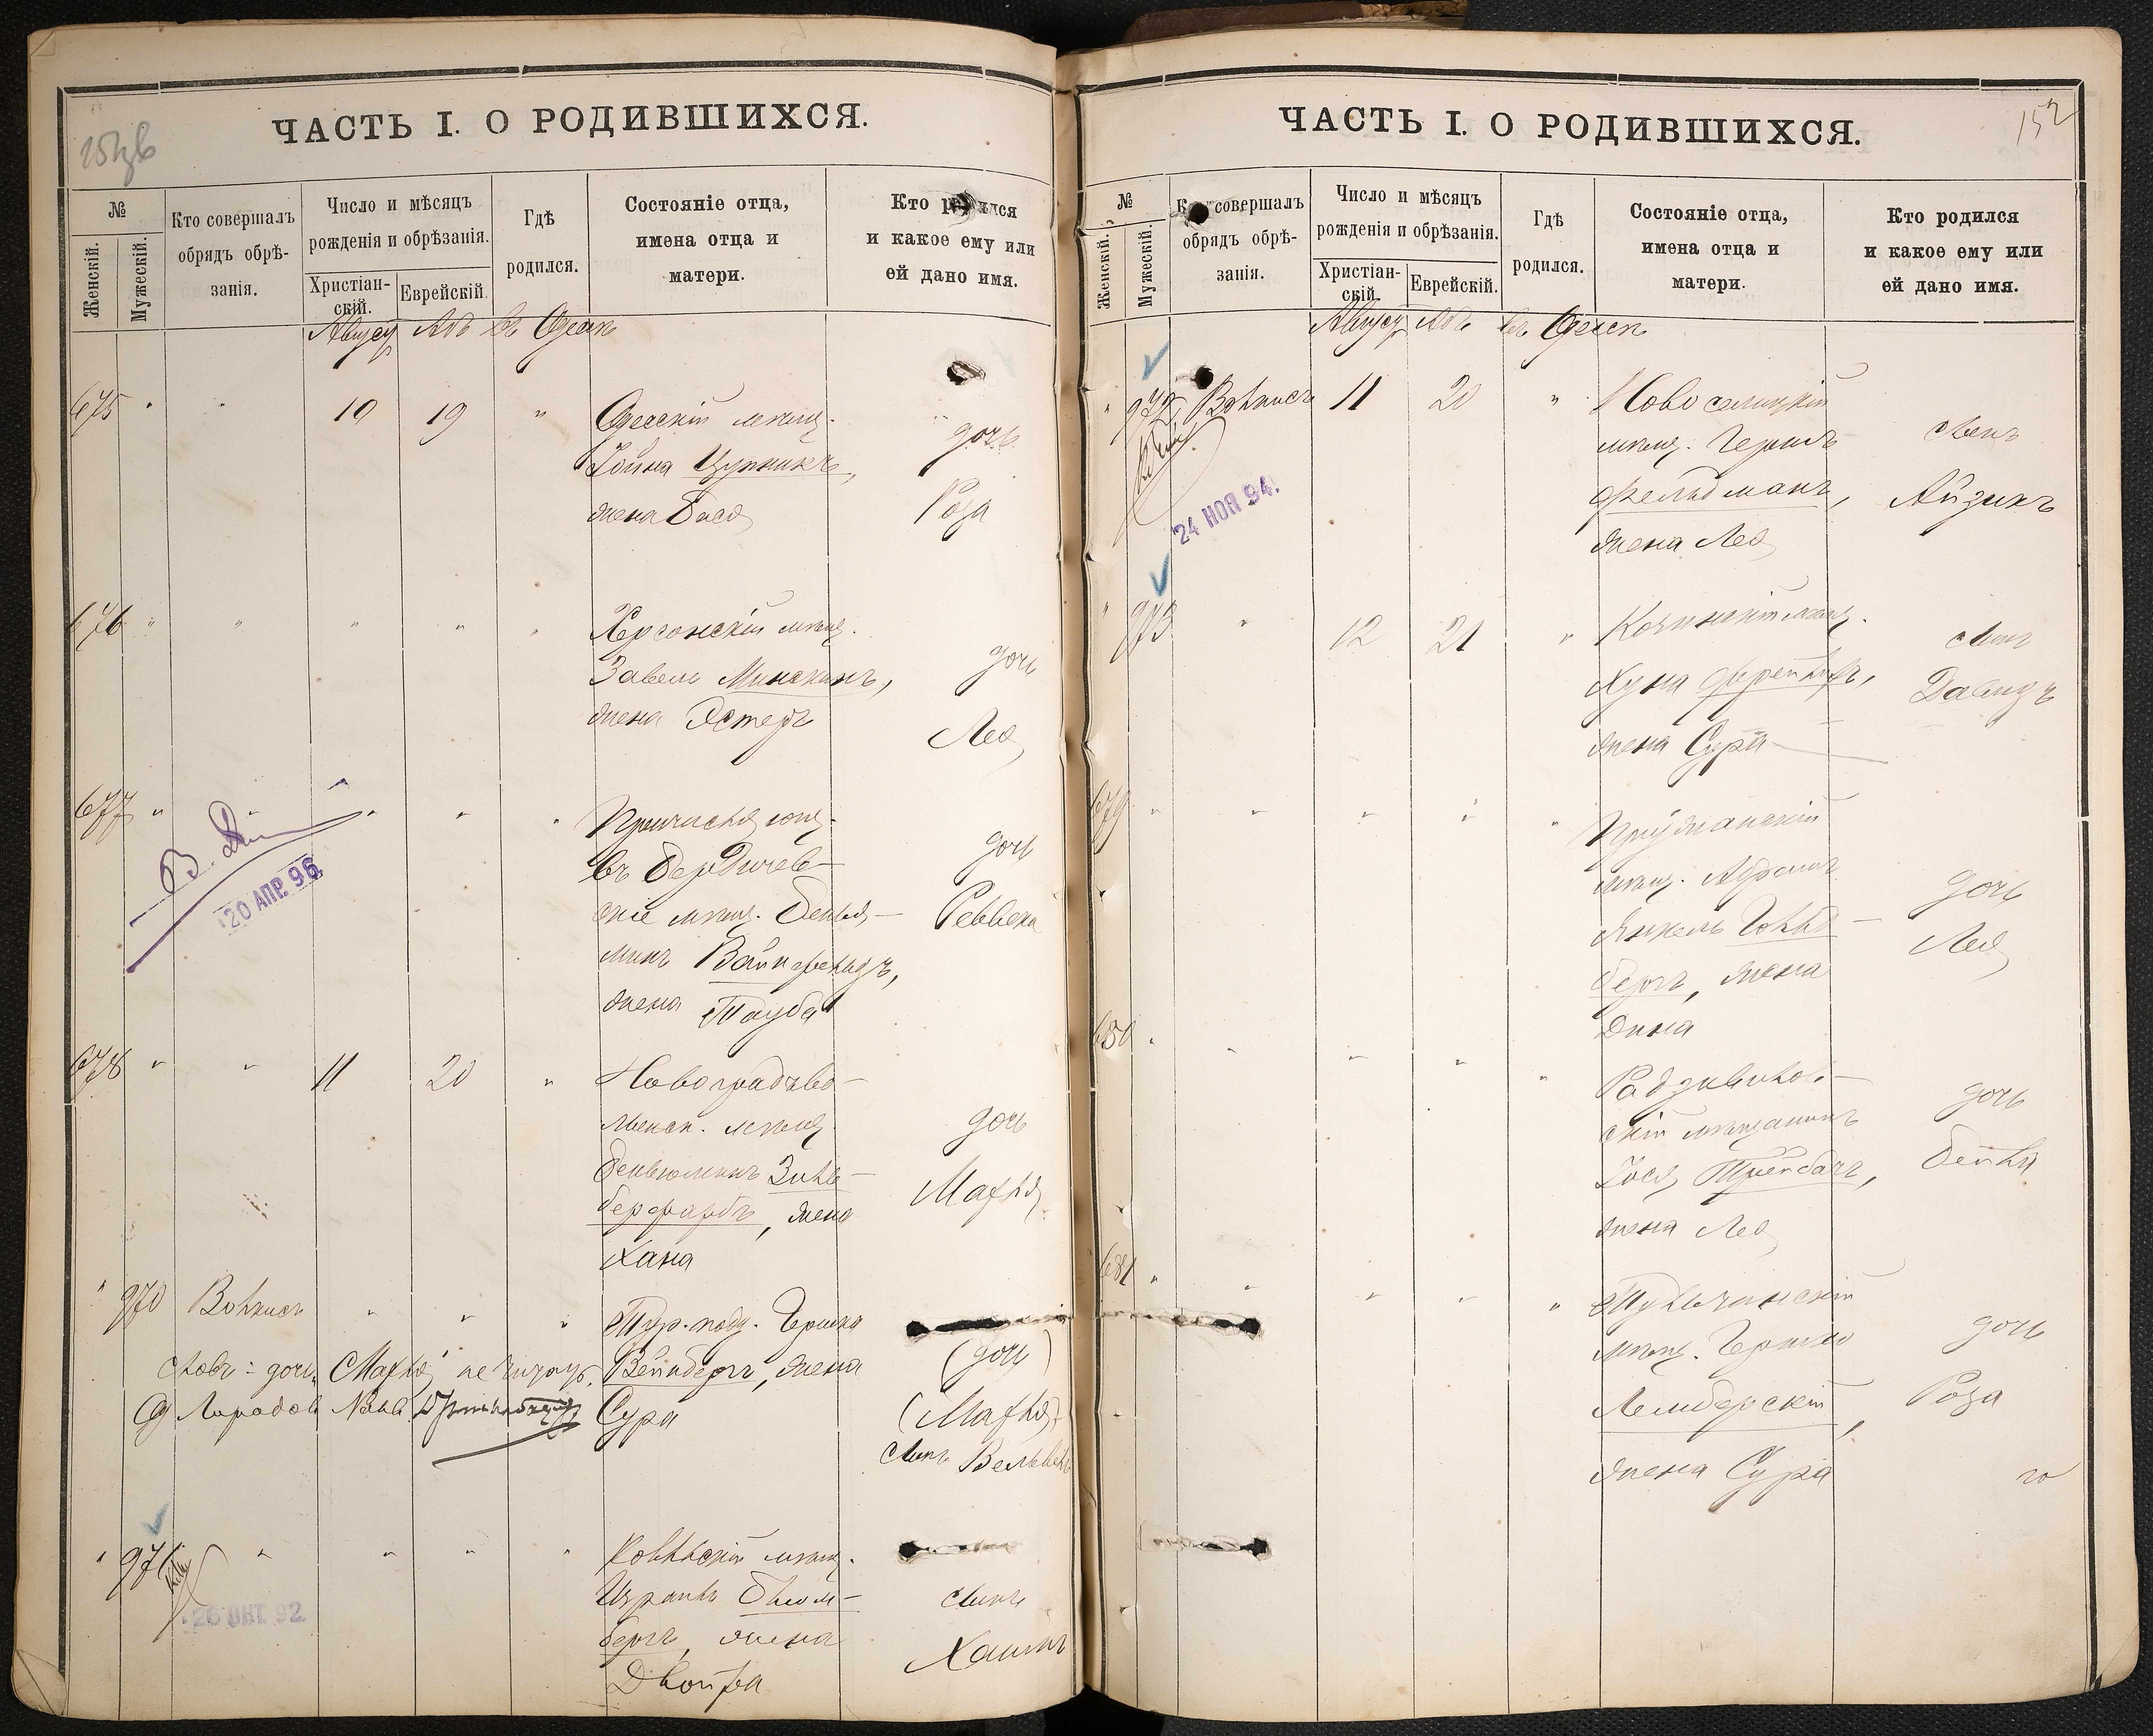 ЧАСТЬ I. О РОДИВШИХСЯ.
№
Женскій.
Мужескій.
Кто совершалъ
обрядъ обрѣ-
занія.
Число и мѣсяцъ
рожденія и обрѣзанія.
Христіан-
скій.
Еврейскій.
Гдѣ
родился.
Состояніе отца,
имена отца и
матери.
Кто родился
и какое ему или
ей дано имя.
Августъ Абъ въ Одессѣ
675 " " 10 19 " Одесскій мѣщ.
Іойна Цупникъ,
жена Бася
дочь
Роза
676 " " " " " Херсонскій мѣщ.
Завель Минскинъ,
жена Эстеръ
дочь
Лея
677 " " " " "
въ Бердичев-
скіе мѣщ. Бенья-
минъ Вайнфельдъ,
жена Тауба
дочь
Ревекка
В.
20 АПР. 96
678 " " 11 20 " Новоградъво-
лынск. мѣщ.
Беньюминъ Зиль-
берфарбъ, жена
Хана
дочь
Махля
" 970 Вольфисъ " " " Тур. под. Гершко
Вейнбергъ, жена
Сура
(дочь)
(Махля)
сынъ Вельвель
слова: дочь Махля не читать.
" 971 " " " " Ковельскій мѣщ.
Израиль Блюм-
бергъ, жена
Двойра
сынъ
Хаимъ
26 ОКТ. 92
ЧАСТЬ I. О РОДИВШИХСЯ.
152
№
Женскій.
Мужескій.
совершалъ
обрядъ обрѣ-
занія.
Число и мѣсяцъ
рожденія и обрѣзанія.
Христіан-
скій.
Еврейскій.
Гдѣ
родился.
Состояніе отца,
имена отца и
матери.
Кто родился
и какое ему или
ей дано имя.
Августъ Абъ въ Одессѣ
" 972 11 20 " Новоселицкій
мѣщ. Гершъ
Фельдманъ,
жена Лея
сынъ
Айзикъ
24 НОЯ 94.
" 973 " 12 21 " мѣщ.
Хуна
жена Сура
сынъ
Давидъ
679 " " " " " Пружанскій
мѣщ. Абрамъ
Янкель Гольд-
бергъ, жена
Дина
дочь
Лея
680 " " " " " Радзивилов-
скій мѣщанинъ
Іося
жена Лея
дочь
Бейла
681 " " " " " Тульчинскій
мѣщ. Гершко
Лембергскій,
жена Сура
дочь
Роза